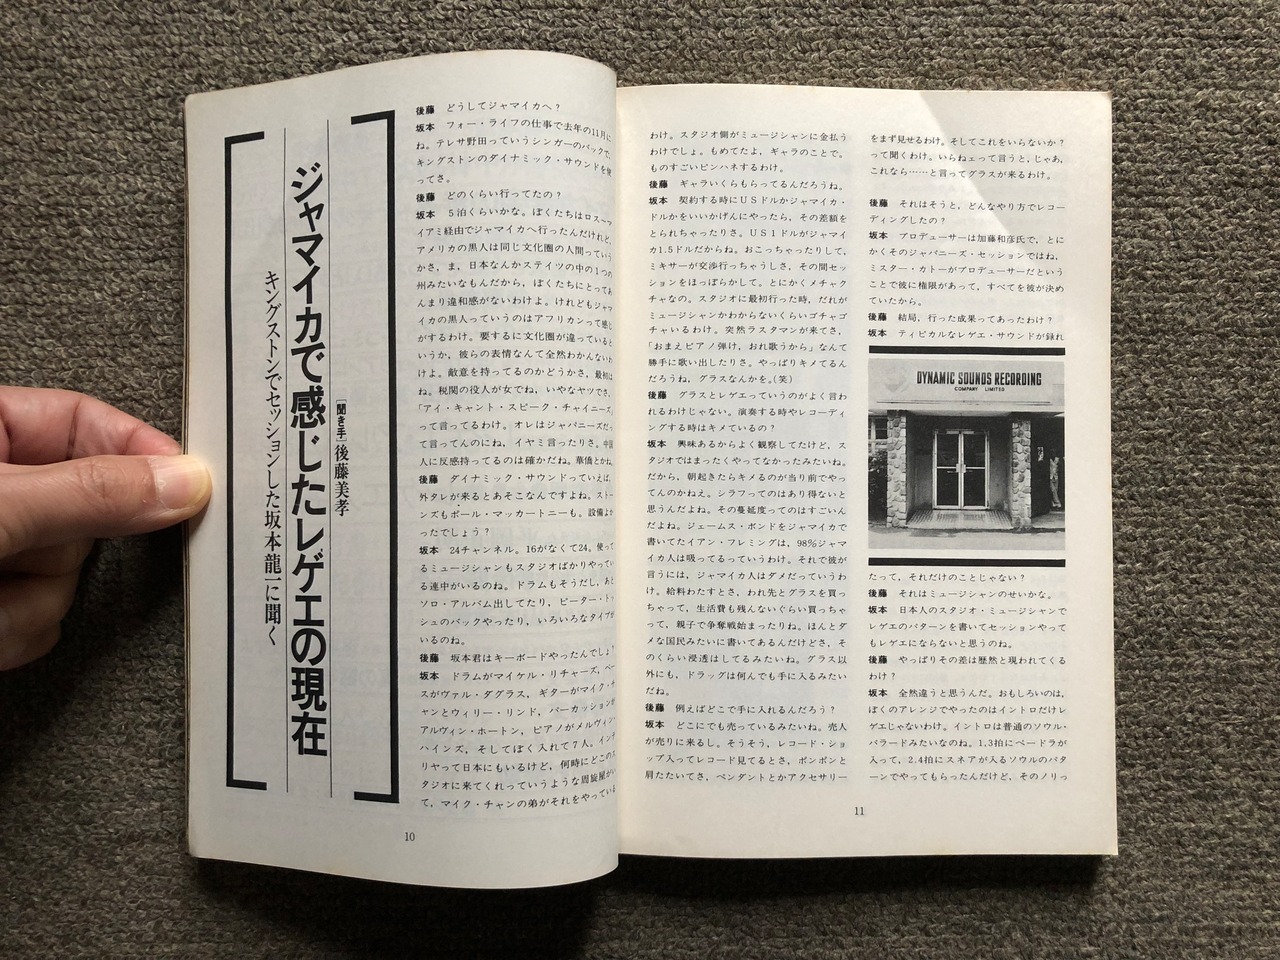 ジャマイカで感じたレゲエの現在
キングストンでセッションした坂本龍一に聞く
[聞き手]後藤美孝
後藤 どうしてジャマイカへ？
坂本 フォー・ライフの仕事で去年の11月に
ね。テレサ野田っていうシンガーのバックで、
キングストンのダイナミック・サウンドを使
ってさ。
後藤 どのくらい行ってたの？
坂本 5泊くらいかな。ぼくたちはロス〜マ
イアミ経由でジャマイカへ行ったんだけれど、
アメリカの黒人は同じ文化圏の人間っていう
かさ、ま、日本なんかステイツの中の1つの
州みたいなもんだから、ぼくたちにとってあ
んまり違和感がないわけよ。けれどもジャマ
イカの黒人っていうのはアフリカンって感じ
がするわけ。要するに文化圏が違っていると
いうか、彼らの表情なんて全然わかんないわ
けよ。敵意を持ってるのかどうかさ、最初は
ね。税関の役人が女でね、いやなヤツでさ、
「アイ・キャント・スピーク・チャイニーズ」
って言ってるわけ。オレはジャパニーズだっ
て言ってんのにね、イヤミ言ったりさ。中国
人に反感持ってるのは確かだね。華僑とかね。
後藤 ダイナミック・サウンドっていえば、
外タレが来るとあそこなんですよね。ストー
ンズもポール・マッカートニーも。設備よか
ったでしょう？
坂本 24チャンネル。16がなくて24。使って
るミュージシャンもスタジオばかりやってい
る連中がいるのね。ドラムもそうだし、あと
ソロ・アルバム出してたり、ピーター・トッ
シュのバックやったり、いろいろなタイプが
いるのね。
後藤 坂本君はキーボードやったんでしょ？
坂本 ドラムがマイケル・リチャーズ、ベー
スがヴァル・ダグラス、ギターがマイク・チ
ャンとウィリー・リンド、パーカッションが
アルヴィン・ホートン、ピアノがメルヴィン・
ハインズ、そしてぼく入れて7人。インテ
リヤって日本にもいるけど、何時にどこのス
タジオに来てくれっていうような周旋屋がい
て、マイク・チャンの弟がそれをやっている
10
わけ。スタジオ側がミュージシャンに金払う
わけでしょ。もめてたよ、ギャラのことで。
ものすごいピンハネするわけ。
後藤 ギャラいくらもらってるんだろうね。
坂本 契約する時にUSドルかジャマイカ・
ドルかをいいかげんにやったら、その差額を
とられちゃったりさ。US1ドルがジャマイ
カ1.5ドルだからね。おこっちゃったりして、
ミキサーが交渉行っちゃうしさ、その間セッ
ションをほっぽらかして。とにかくメチャク
チャなの。スタジオに最初行った時、だれが
ミュージシャンかわからないくらいゴチャゴ
チャいるわけ。突然ラスタマンが来てさ、
「おまえピアノ弾け、おれ歌うから」なんて
勝手に歌い出したりさ。やっぱりキメてるん
だろうね、グラスなんかを。(笑)
後藤 グラスとレゲエっていうのがよく言わ
れるわけじゃない。演奏する時やレコーディ
ングする時はキメているの？
坂本 興味あるからよく観察してたけど、ス
タジオではまったくやってなかったみたいね。
だから、朝起きたらキメるのが当り前でやっ
てんのかねえ。シラフってのはあり得ないと
思うんだよね。その蔓延度ってのはすごいん
だよね。ジェームス・ボンドをジャマイカで
書いてたイアン・フレミングは、98%ジャマ
イカ人は吸ってるっていうわけ。それで彼が
言うには、ジャマイカ人はダメだっていうわ
け。給料わたすとさ、われ先とグラスを買っ
ちゃって、生活費も残んないぐらい買っちゃ
って、親子で争奪戦始まったりね。ほんとダ
メな国民みたいに書いてあるんだけどさ、そ
のくらい浸透はしてるみたいね。グラス以
外にも、ドラッグは何んでも手に入るみたい
だね。
後藤 例えばどこで手に入れるんだろう？
坂本 どこにでも売っているみたいね。売人
が売りに来るし。そうそう、レコード・ショ
ップ入ってレコード見てるとさ、ポンポンと
肩たたいてさ、ペンダントとかアクセサリー
をまず見せるわけ。そしてこれをいらないか？
って聞くわけ。いらねェって言うと、じゃあ、
これなら……と言ってグラスが来るわけ。
後藤 それはそうと、どんなやり方でレコー
ディングしたの？
坂本 プロデューサーは加藤和彦氏で、とに
かくそのジャパニーズ・セッションではね、
ミスター・カトーがプロデューサーだという
ことで彼に権限があって、すべてを彼が決め
ていたから。
後藤 結局、行った成果ってあったわけ？
坂本 ティピカルなレゲエ・サウンドが録れ
DYNAMIC SOUNDS RECORDING
COMPANY LIMITED
たって、それだけのことじゃない？
後藤 それはミュージシャンのせいかな。
坂本 日本人のスタジオ・ミュージシャンで
レゲエのパターンを書いてセッションやって
もレゲエにならないと思うのね。
後藤 やっぱりその差は歴然と現われてくる
わけ？
坂本 全然違うと思うんだ。おもしろいのは、
ぼくのアレンジでやったのはイントロだけレ
ゲエじゃないわけ。イントロは普通のソウル・
バラードみたいなのね。1.3拍にベードラが
入って、2.4拍にスネアが入るソウルのパタ
ーンでやってもらったんだけど、そのノリっ
11